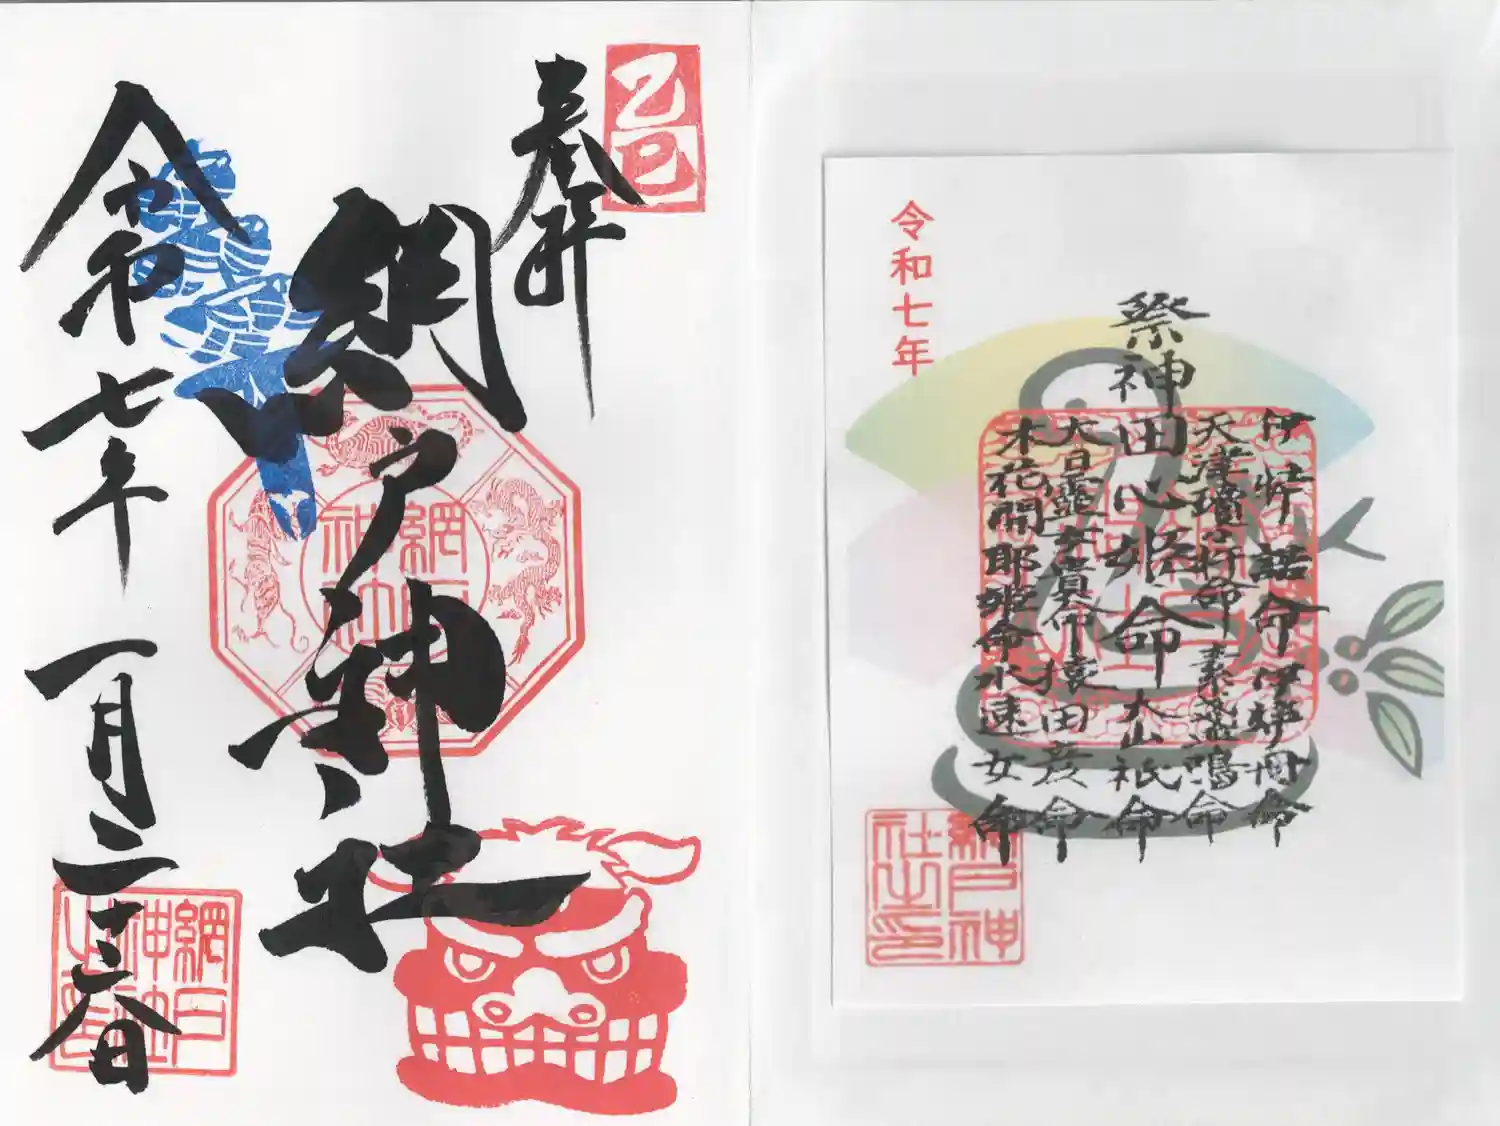 乙巳
奉拝
網戸神社
網戸神社
令和七年一月二十六日
網戸神社之印
令和七年
祭神
伊弉諾命 伊弉冊命
天津瓊々杵命 素盞鳴命
田心姫命 大山祇命
大日孁貴命 猿田彦命
木花開耶姫命 水速女命
網戸神社之印